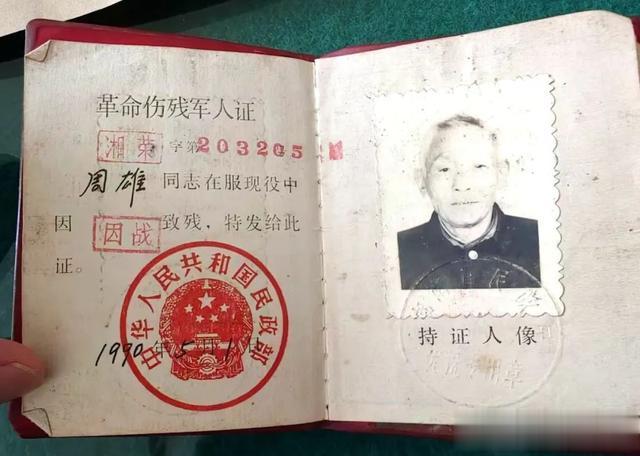 革命伤残军人证
湘荣 字第203205
周雄 同志在服现役中
因 因战 致残，特发给此
证。
中华人民共和国民政部
1990年5月1日
持证人像